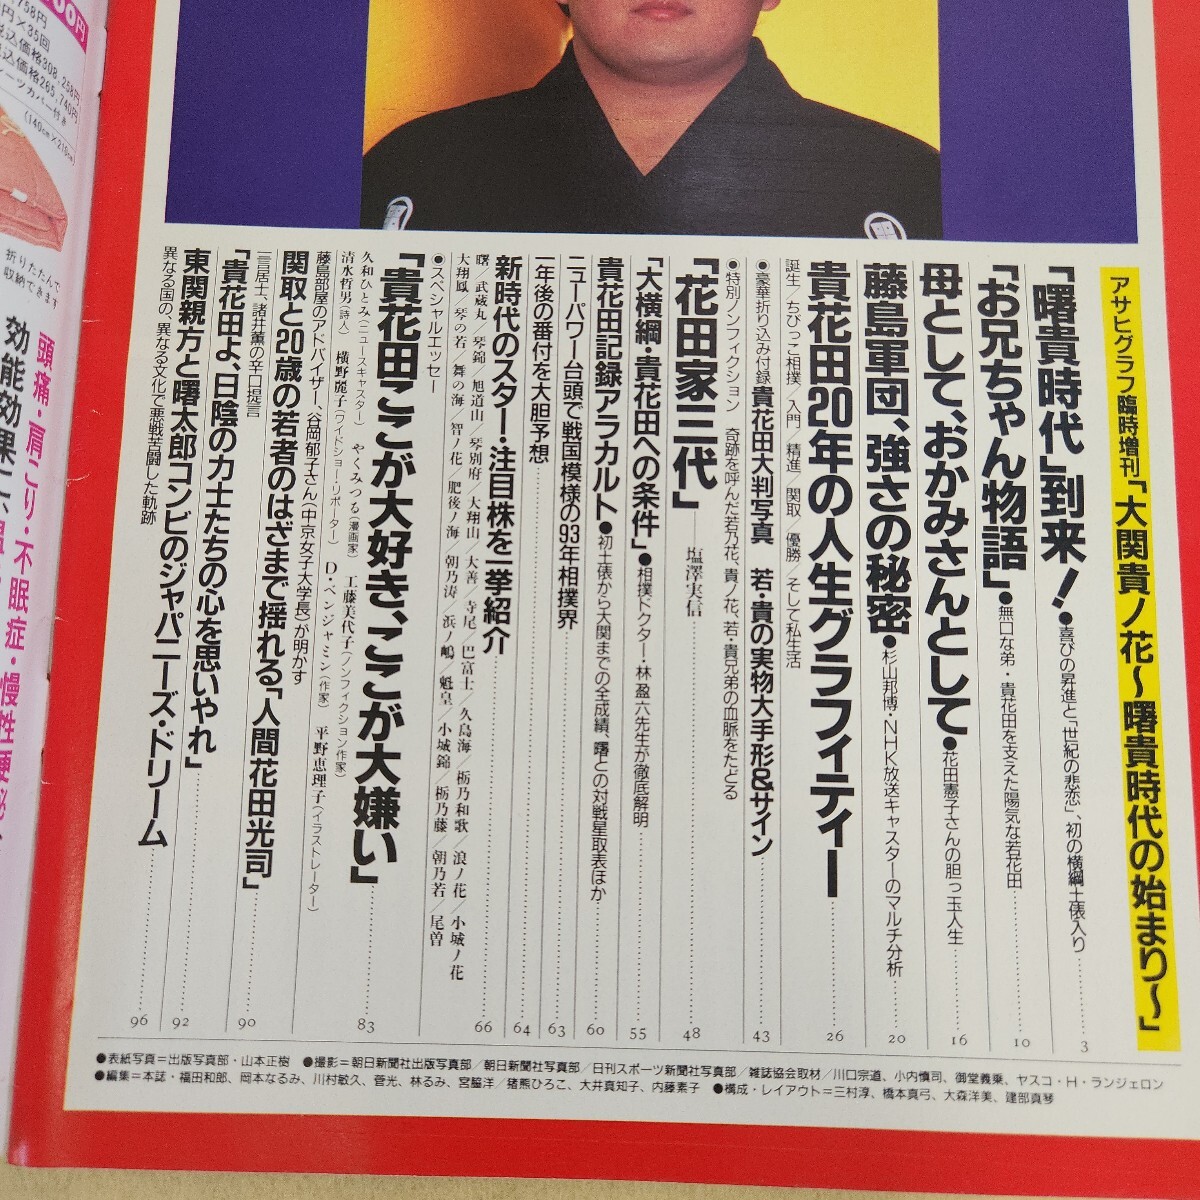 アサヒグラフ臨時増刊「大関貴ノ花〜曙貴時代の始まり〜」
「曙貴時代」到来！●喜びの昇進と「世紀の悲恋」、初の横綱土俵入り……3
「お兄ちゃん物語」●無口な弟・貴花田を支えた陽気な若花田……10
母として、おかみさんとして●花田憲子さんの胆っ玉人生……16
藤島軍団、強さの秘密●杉山邦博・NHK放送キャスターのマルチ分析……20
貴花田20年の人生グラフィティー……26
誕生／ちびっこ相撲／入門／精進／関取／優勝／そして私生活
●豪華折り込み付録 貴花田大判写真 若・貴の実物大手形&サイン……43
●特別ノンフィクション 奇跡を呼んだ若乃花、貴ノ花、若・貴兄弟の血脈をたどる
「花田家三代」……塩澤実信……48
「大横綱・貴花田への条件」●相撲ドクター・林盈六先生が徹底解明……55
貴花田記録アラカルト●初土俵から大関までの全成績、曙との対戦星取表ほか……60
ニューパワー台頭で戦国模様の93年相撲界……63
一年後の番付を大胆予想……64
新時代のスター・注目株を一挙紹介……66
曙／武蔵丸／琴錦／旭道山／琴別府／大翔山／大善／寺尾／巴富士／久島海／栃乃和歌／浪ノ花／小城ノ花
大翔鳳／琴の若／舞の海／智ノ花／肥後ノ海 朝乃涛／浜ノ嶋／魁皇／小城錦／栃乃藤／朝乃若／尾曽
●スペシャルエッセー
「貴花田ここが大好き、ここが大嫌い」……83
久和ひとみ（ニュースキャスター） やくみつる（漫画家） 工藤美代子（ノンフィクション作家）
清水哲男（詩人） 横野麗子（ワイドショー・リポーター） D・ベンジャミン（作家） 平野恵理子（イラストレーター）
藤島部屋のアドバイザー、谷岡郁子さん（中京女子大学長）が明かす
関取と20歳の若者のはざまで揺れる「人間花田光司」……90
一言居士、諸井薫の辛口提言
「貴花田よ、日陰の力士たちの心を思いやれ」……92
東関親方と曙太郎コンビのジャパニーズ・ドリーム……96
異なる国の、異なる文化で悪戦苦闘した軌跡
●表紙写真＝出版写真部・山本正樹 ●撮影＝朝日新聞社出版写真部／朝日新聞社写真部／日刊スポーツ新聞社写真部／雑誌協会取材／川口宗道、小内慎司、御堂義乗、ヤスコ・H・ランジェロン
●編集＝本誌・福田和郎、岡本なるみ、川村敏久、菅光、林るみ、宮脇洋／猪熊ひろこ、大井真知子、内藤素子 ●構成・レイアウト＝三村淳、橋本真弓、大森洋美、建部真琴
円×35回
税込価格308,258円
税込価格265,740円
（140cm×210cm）
折りたたんで
収納できます
頭痛・肩こり・不眠症・慢性便秘
効能効果